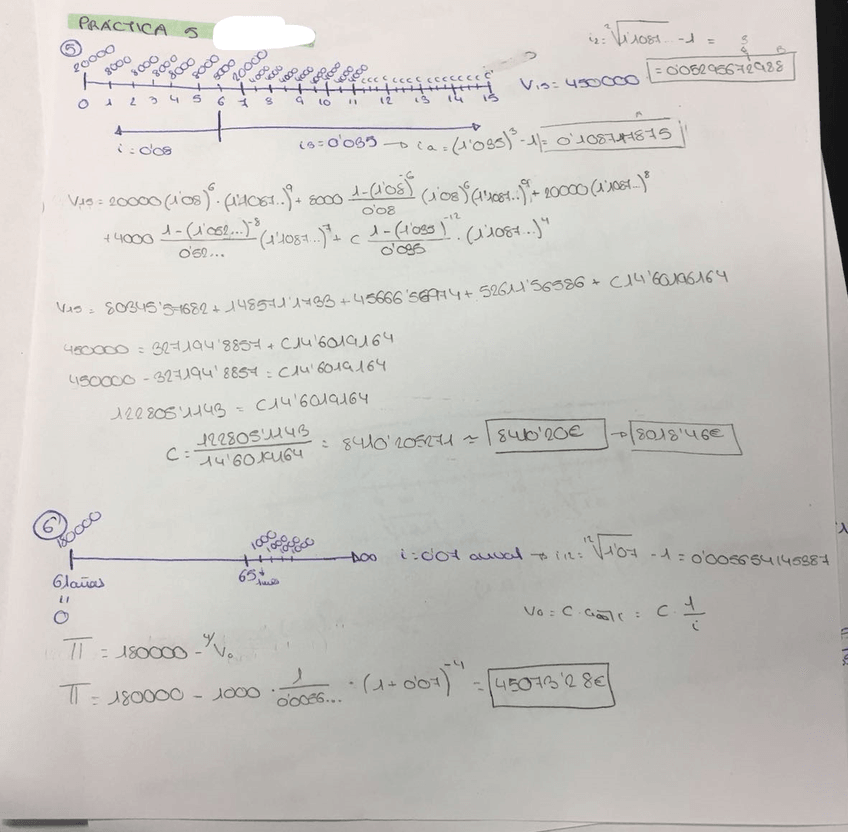 PRÁCTICA 5
5
i2 = ²√1'1087... - 1 =
= 0'05295672988
20000 8000 8000 8000 8000 8000 8000 20000 4000 4000 4000 4000 4000 4000 4000 4000 c c c c c c c c c c c c
0 1 2 3 4 5 6 7 8 9 10 11 12 13 14 15
V15 = 450000
i = 0'08
i3 = 0'035 → ia = (1'035)³ - 1 = 0'108717875
V15 = 20000 (1'08)⁶ · (1'1087...)⁹ + 8000 1-(1'08)⁻⁶ / 0'08 (1'08)⁶ (1'1087...)⁹ + 20000 (1'1087...)⁸
+ 4000 1-(1'052...)⁻⁸ / 0'52... (1'1087...)⁷ + c 1-(1'035)⁻¹² / 0'035 · (1'1087...)⁴
V15 = 80345'57682 + 148571'1733 + 45666'56974 + 52611'56586 + C14'60196164
450000 = 327194'8857 + C14'6019164
450000 - 327194'8857 = C14'6019164
122805'1143 = C14'6019164
C = 122805'1143 / 14'6019164 = 8410'205271 ≈ 8410'20€ → 8018'46€
6
180000
1000 1000 1000 1000
∞
i = 0'07 anual → i12 = ¹²√1'07 - 1 = 0'005654145387
61 años
65
"
0
V0 = C · a∞|i = C · 1/i
Π = 180000 - ⁴/V0
Π = 180000 - 1000 · 1 / 0'0056... · (1 + 0'07)⁻⁴ = 45073'28€